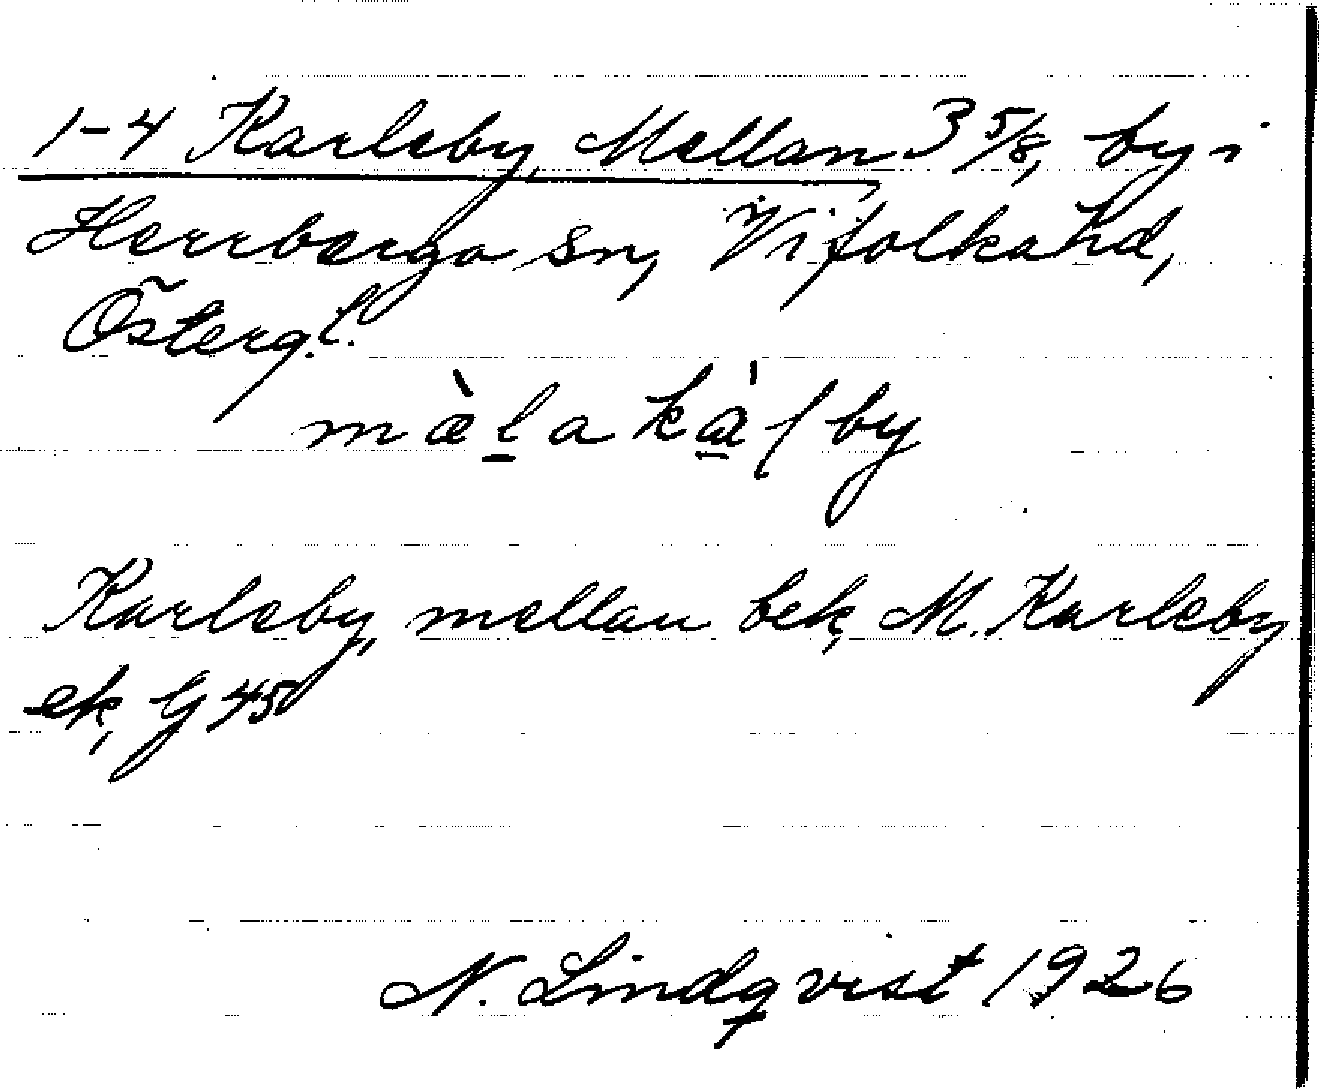 1-4 Karleby, Mellan 3 5/8, by i
Herrberga sn, Vifolka hd,
Österg.l.
mæ̀la kɑ̀ɭby
Karleby, mellan bek, M. Karleby
ek, G 45
N. Lindqvist 1926